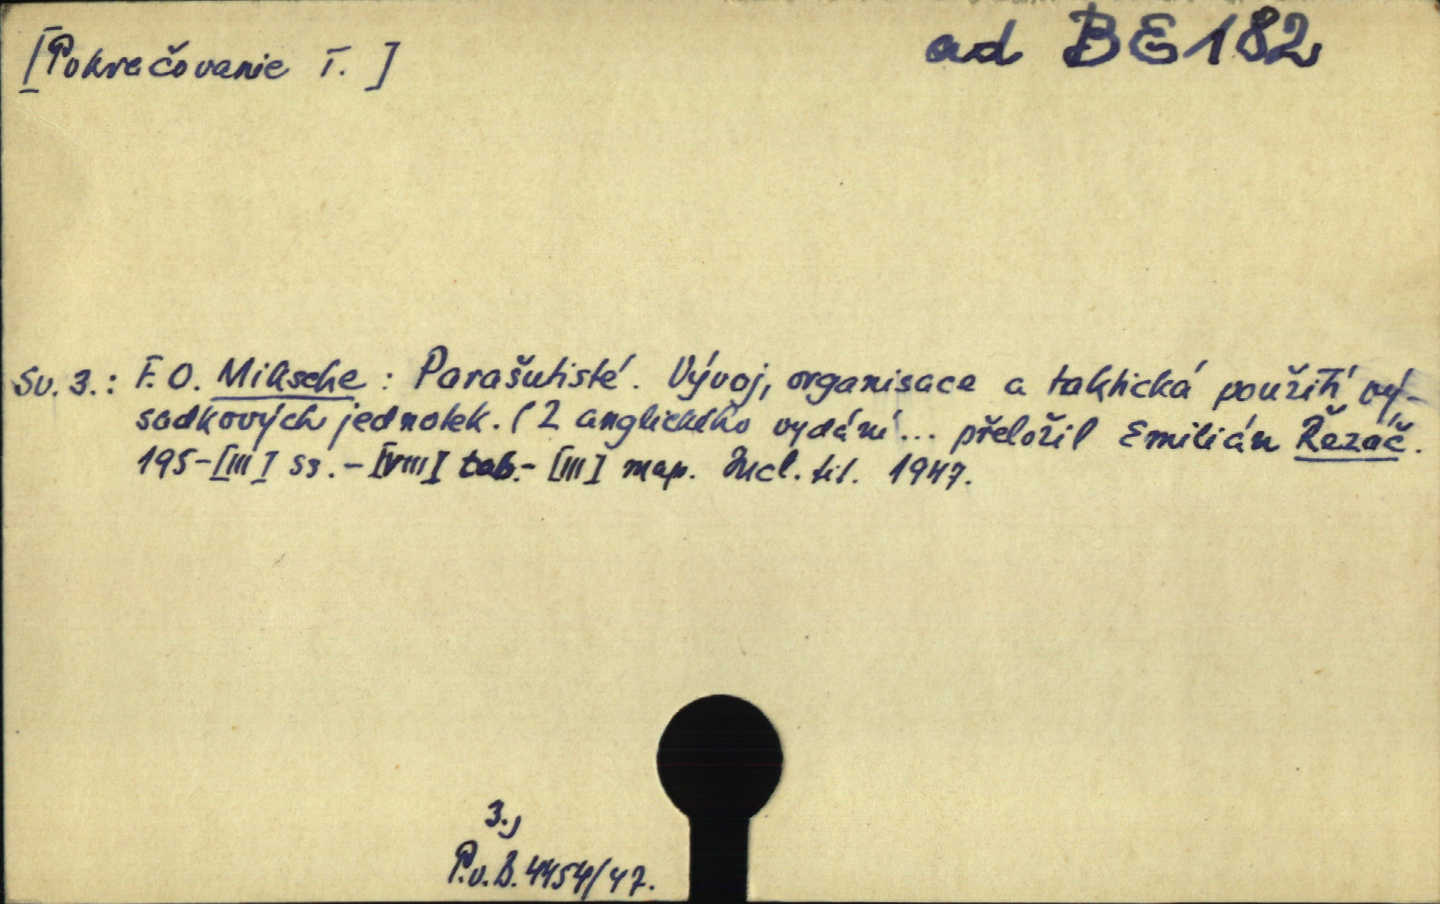 [Pokračovanie I.]
ad BE 182
Sv. 3.: F. O. Miksche : Parašutisté. Vývoj, organisace a taktická použití vý-
sadkových jednotek. (Z anglického vydání ... přeložil Emilián Řezáč.
195-[III] ss. - [VIII] tab. - [III] map. Incl. tit. 1947.
3.,
P.v.B. 4454/47.